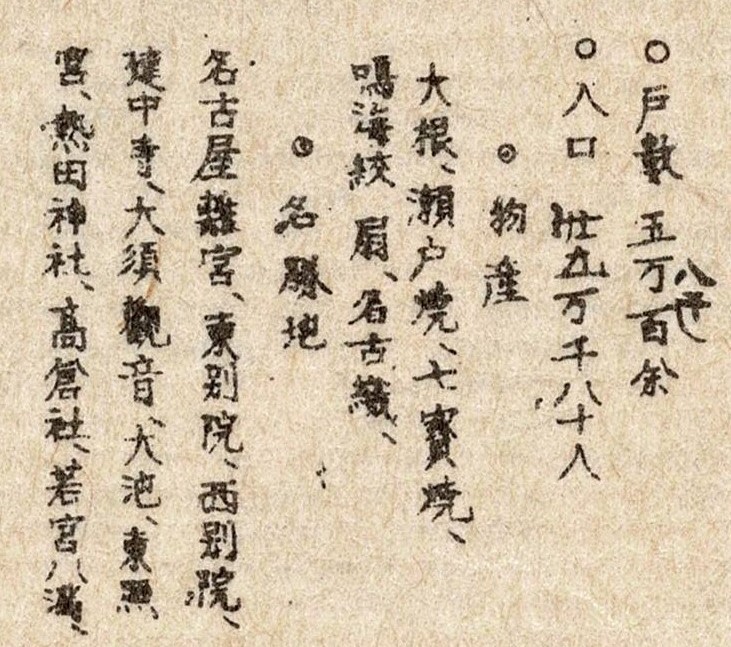 ○戸数 五万八千百余
○人口 廿九万千八十人
◎物産
大根、瀬戸焼、七寳焼、
鳴海絞、扇、名古織、
◎名勝地
名古屋離宮、東別院、西別院、
建中寺、大須觀音、大池、東照
宮、熱田神社、高倉社、若宮八幡、